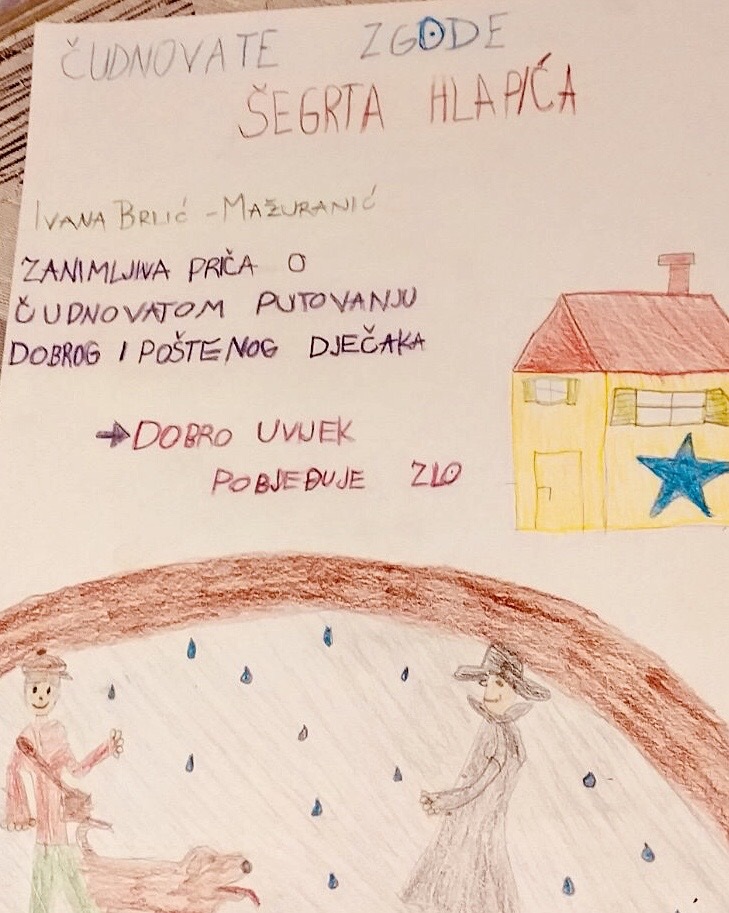 ČUDNOVATE ZGODE
ŠEGRTA HLAPIĆA
IVANA BRLIĆ - MAŽURANIĆ
ZANIMLJIVA PRIČA O
ČUDNOVATOM PUTOVANJU
DOBROG I POŠTENOG DJEČAKA
→ DOBRO UVIJEK
POBJEĐUJE ZLO